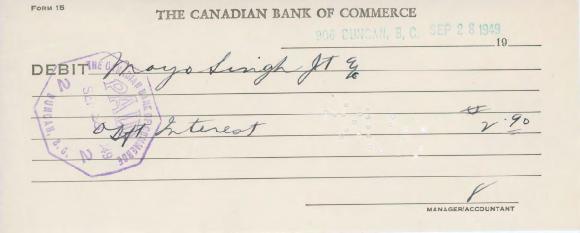 FORM 15
THE CANADIAN BANK OF COMMERCE
906 DUNCAN, B. C. SEP 28 1949
19
DEBIT Mayo Singh Jt %
O Dft Interest $2.90
THE CANADIAN BANK OF COMMERCE
PAID
SEP 28 1949
2 2
DUNCAN, B.C.
MANAGER/ACCOUNTANT